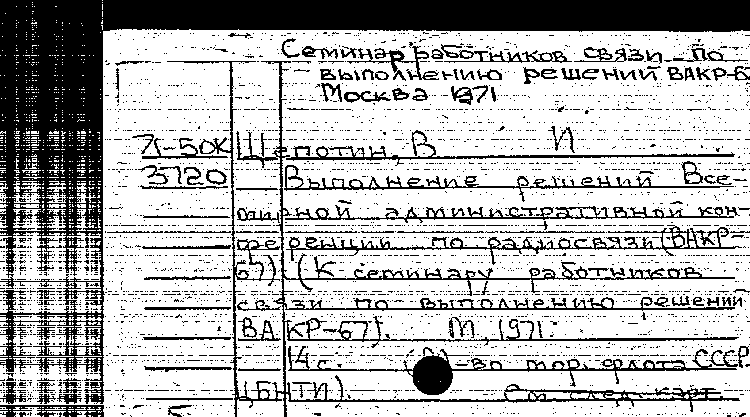 Семинар работников связи по
выполнению решений ВАКР-6
Москва 1971
71-50К Щепотин, В И
3120 Выполнение решений Все-
мирной административной кон-
ференции по радиосвязи (ВАКР-
67). (К семинару работников
связи по выполнению решений
ВАКР-67). М, 1971.
14 с. (М-во мор. флота СССР.
ЦБНТИ). См след. карт.